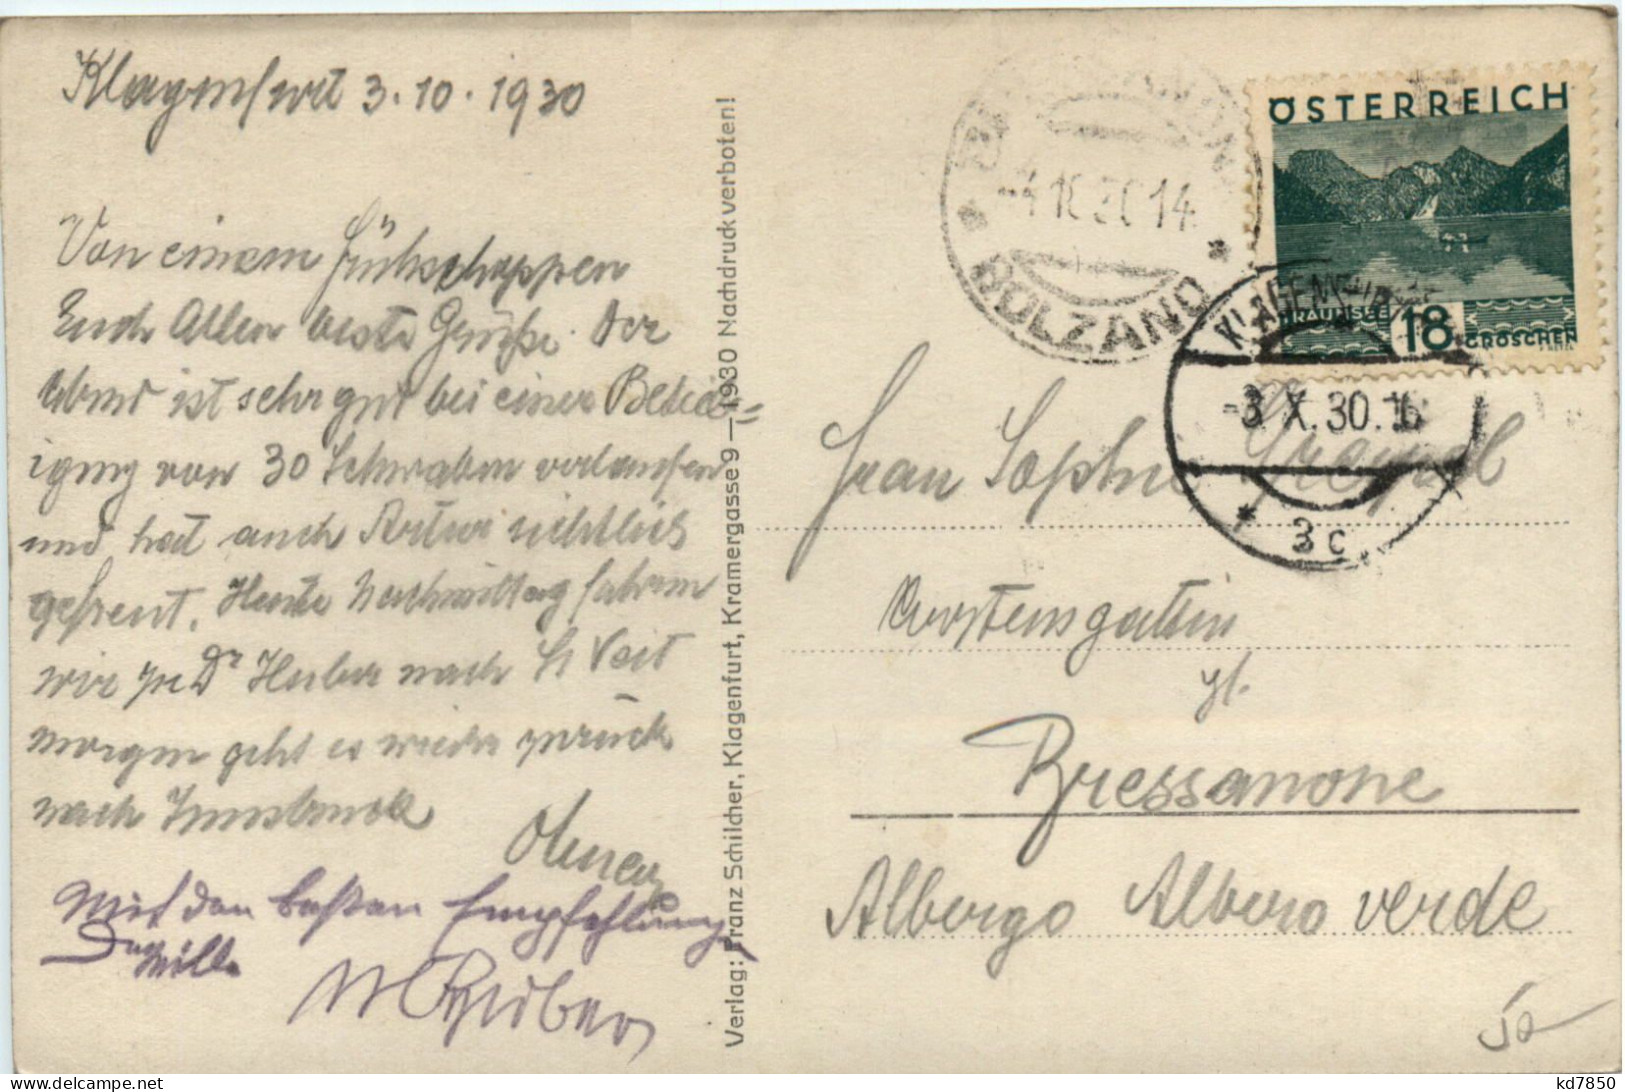 Klagenfurt 3.10.1930
Von einem Frühschoppen
Euch Allen beste Grüße. Der
Abend ist sehr gut bei einer Beteil=
igung von 30 Schwaben verlaufen
und hat auch Artur sichtlich
gefreut. Heute Nachmittag fahren
wir zu Dr Huber nach St Veit
morgen geht es wieder zurück
nach Innsbruck
Mit den besten Empfehlungen
Verlag: Franz Schilcher, Klagenfurt, Kramergasse 9 — 1930 Nachdruck verboten!
BOLZANO
-4 10 30 14
ÖSTERREICH
TRAUNSEE 18 GROSCHEN
KLAGENFURT
-3.X.30.16
* 3c
Frau Sophie
Bressanone
Albergo Albero verde
50
kd7850